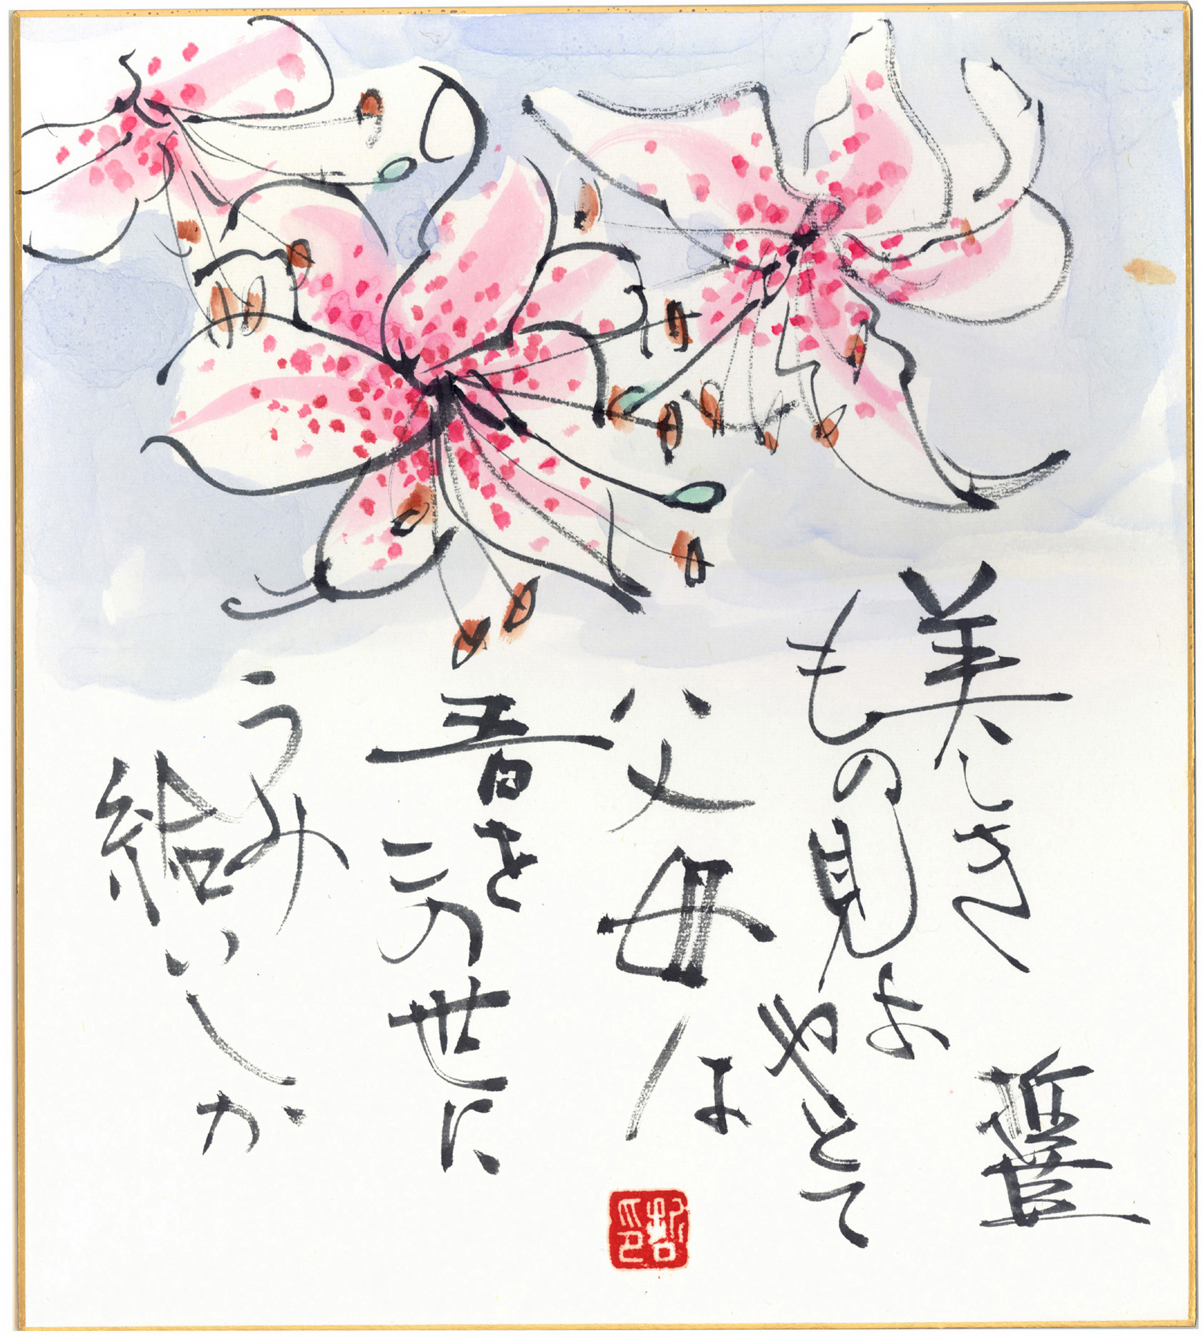 美しき
もの見よ
やとて
父母は
吾を
この世に
うみ
給いしか